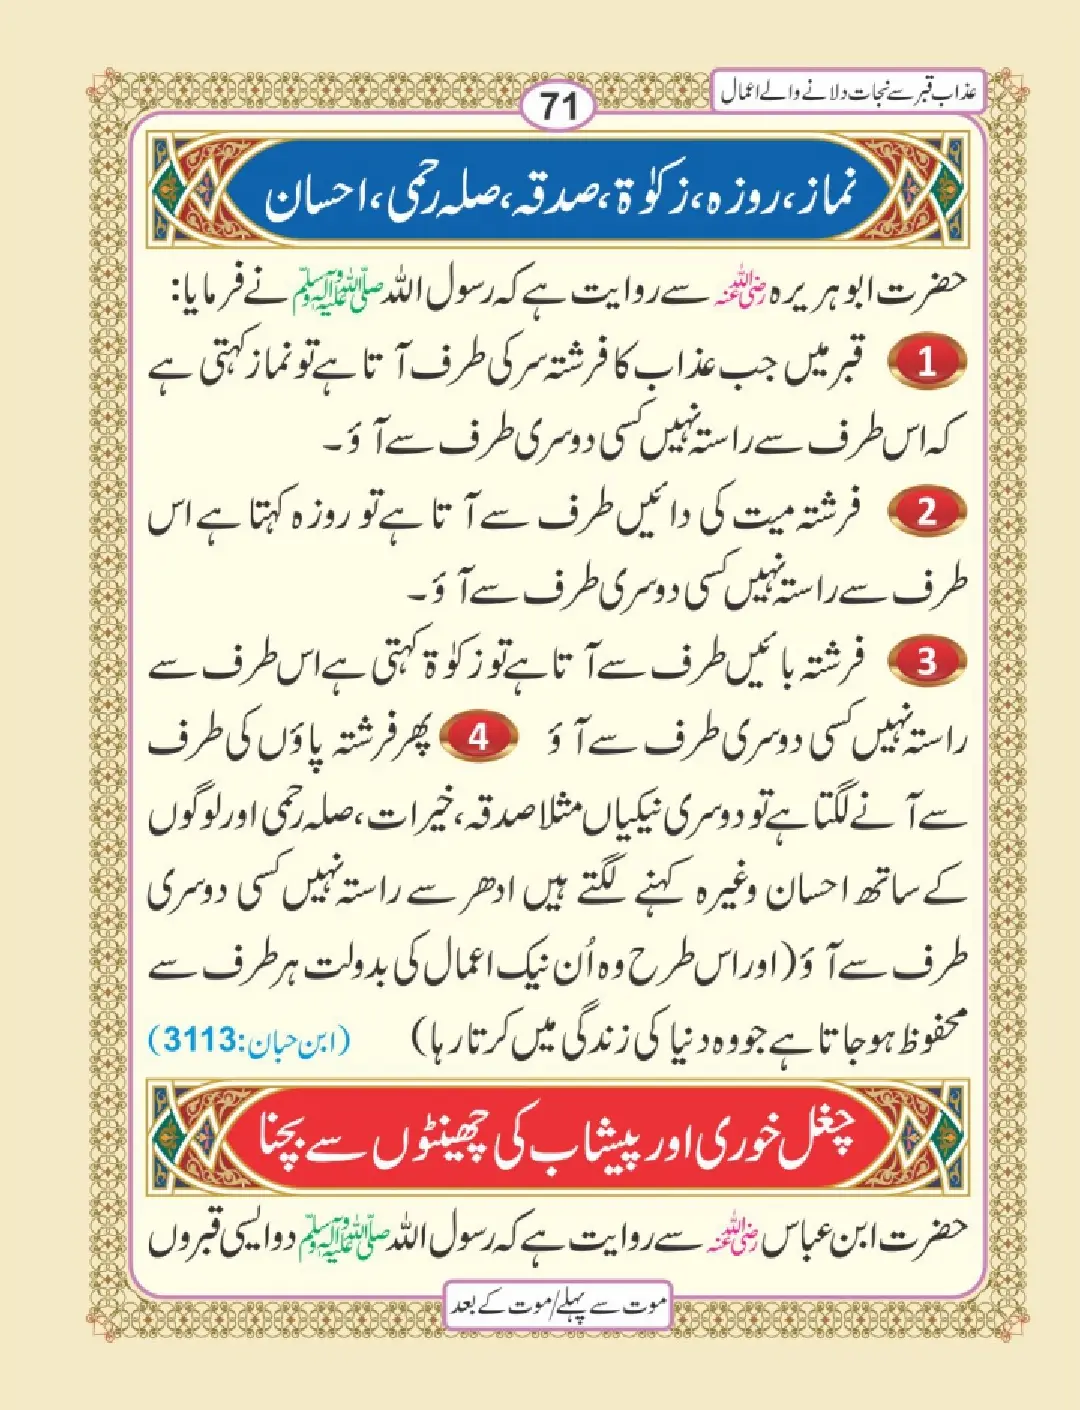 عذاب قبر سے نجات دلانے والے اعمال
71
نماز، روزہ، زکوٰۃ، صدقہ، صلہ رحمی، احسان
حضرت ابو ہریرہ رضی اللہ عنہ سے روایت ہے کہ رسول اللہ صلی اللہ علیہ وآلہ وسلم نے فرمایا:
1 قبر میں جب عذاب کا فرشتہ سر کی طرف آتا ہے تو نماز کہتی ہے
کہ اس طرف سے راستہ نہیں کسی دوسری طرف سے آؤ۔
2 فرشتہ میت کی دائیں طرف سے آتا ہے تو روزہ کہتا ہے اس
طرف سے راستہ نہیں کسی دوسری طرف سے آؤ۔
3 فرشتہ بائیں طرف سے آتا ہے تو زکوٰۃ کہتی ہے اس طرف سے
راستہ نہیں کسی دوسری طرف سے آؤ 4 پھر فرشتہ پاؤں کی طرف
سے آنے لگتا ہے تو دوسری نیکیاں مثلا صدقہ، خیرات، صلہ رحمی اور لوگوں
کے ساتھ احسان وغیرہ کہنے لگتے ہیں ادھر سے راستہ نہیں کسی دوسری
طرف سے آؤ (اور اس طرح وہ اُن نیک اعمال کی بدولت ہر طرف سے
محفوظ ہو جاتا ہے جو وہ دنیا کی زندگی میں کرتا رہا) (ابن حبان: 3113)
چغل خوری اور پیشاب کی چھینٹوں سے بچنا
حضرت ابن عباس رضی اللہ عنہ سے روایت ہے کہ رسول اللہ صلی اللہ علیہ وآلہ وسلم دو ایسی قبروں
موت سے پہلے/موت کے بعد